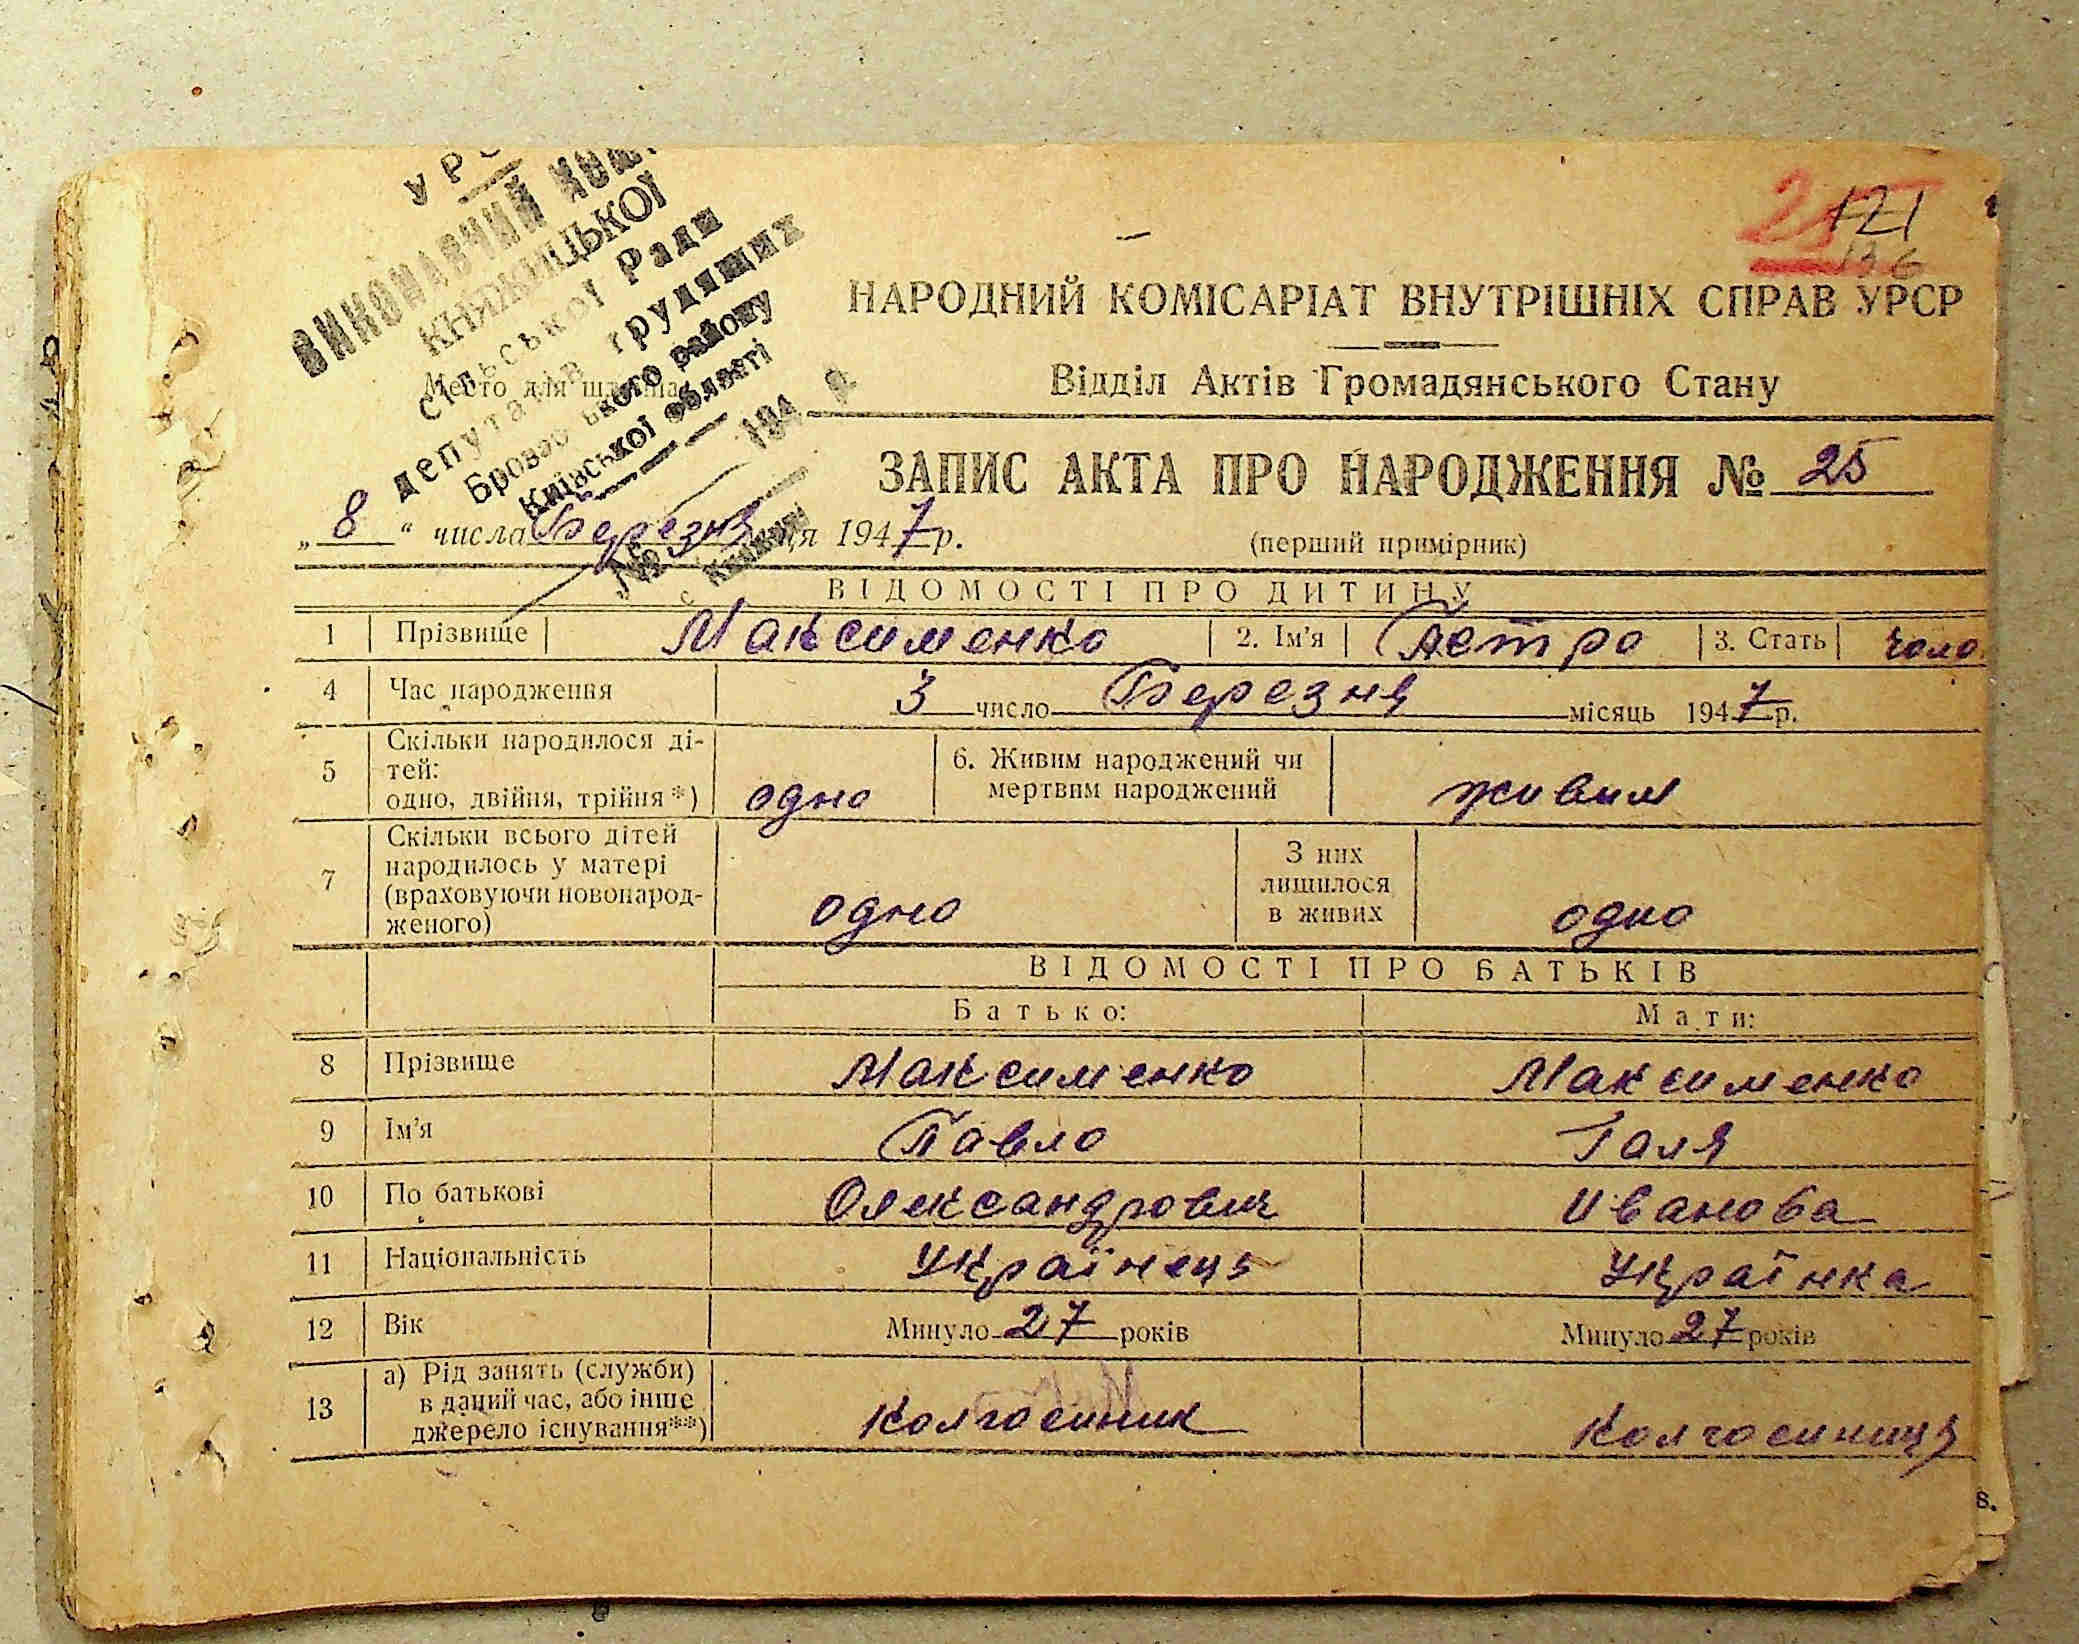 УРС
ВИКОНАВЧИЙ КОМ
КНЯЖИЦЬКОЇ
сільської Ради
депутатів трудящих
Броварського району
Київської області
194 р.
№
с. Княжичі
Место для штампа
25
121
136
НАРОДНИЙ КОМІСАРІАТ ВНУТРІШНІХ СПРАВ УРСР
Відділ Актів Громадянського Стану
ЗАПИС АКТА ПРО НАРОДЖЕННЯ № 25
„8“ числа Березня ця 1947 р.
(перший примірник)
ВІДОМОСТІ ПРО ДИТИНУ
1 Прізвище Максименко 2. Ім'я Петро 3. Стать чоло
4 Час народження 3 число Березня місяць 1947 р.
5 Скільки народилося ді-
тей:
одно, двійня, трійня*) одно
6. Живим народжений чи
мертвим народжений живим
7 Скільки всього дітей
народилось у матері
(враховуючи новонарод-
женого) одно
З них
лишилося
в живих одно
ВІДОМОСТІ ПРО БАТЬКІВ
Батько: Мати:
8 Прізвище Максименко Максименко
9 Ім'я Павло Галя
10 По батькові Олександрович Иванова
11 Національність Українець Українка
12 Вік Минуло 27 років Минуло 27 років
13 а) Рід занять (служби)
в даний час, або інше
джерело існування**) Колгосиник Колгосиниця
в.